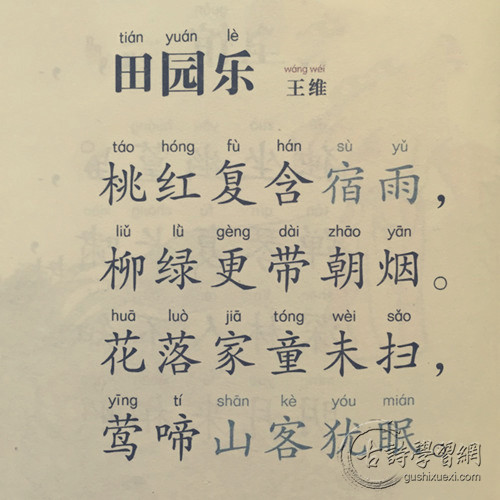 tián yuán lè
田园乐
wáng wéi
王维
táo hóng fù hán sù yǔ
桃红复含宿雨，
liǔ lǜ gèng dài zhāo yān
柳绿更带朝烟。
huā luò jiā tóng wèi sǎo
花落家童未扫，
yīng tí shān kè yóu mián
莺啼山客犹眠
古詩學習網
gushixuexi.com